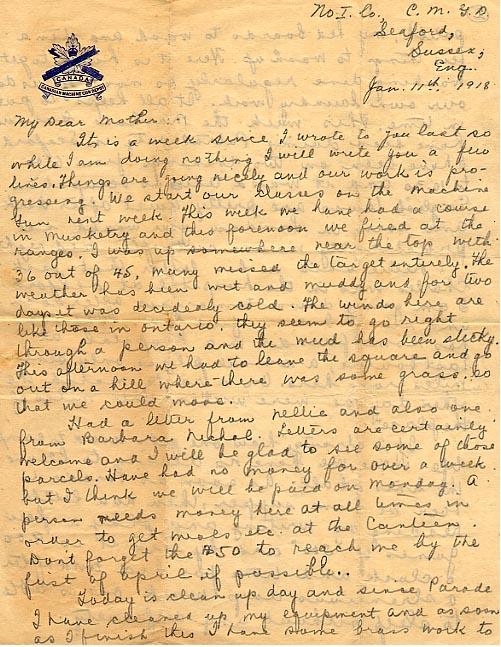 No. 1. Co., C. M. G. D.
Seaford,
Sussex,
Eng.
Jan. 11th, 1918
CANADA
CANADIAN MACHINE GUN DEPOT
My Dear Mother:-
Its is a week since I wrote to you last so
while I am doing nothing I will write you a few
lines. Things are going nicely and our work is pro-
gressing. We start our classes on the machine
Gun next week. This week we have had a course
in Musketry and this forenoon we fired at the
ranges. I was up somewhere near the top with
36 out of 45, many missed the target entirely. The
weather has been wet and muddy and for two
days it was decidedly cold. The winds here are
like those in Ontario. they seem to go right
through a person and the mud has been sticky.
This afternoon we had to leave the square and go
out on a hill where there was some grass, so
that we could move.
Had a letter from Nellie and also one
from Barbara. Letters are certainly
welcome and I will be glad to see some of those
parcels. Have had no money for over a week
but I think we will be paid on Monday. A
person needs money here at all times in
order to get meals, etc. at the Canteen.
Dont forget the $50 to reach me by the
first of April if possible..
Today is clean up day and since Parade
I have cleaned up my equipment and as soon
as I finish this I have some brass work to